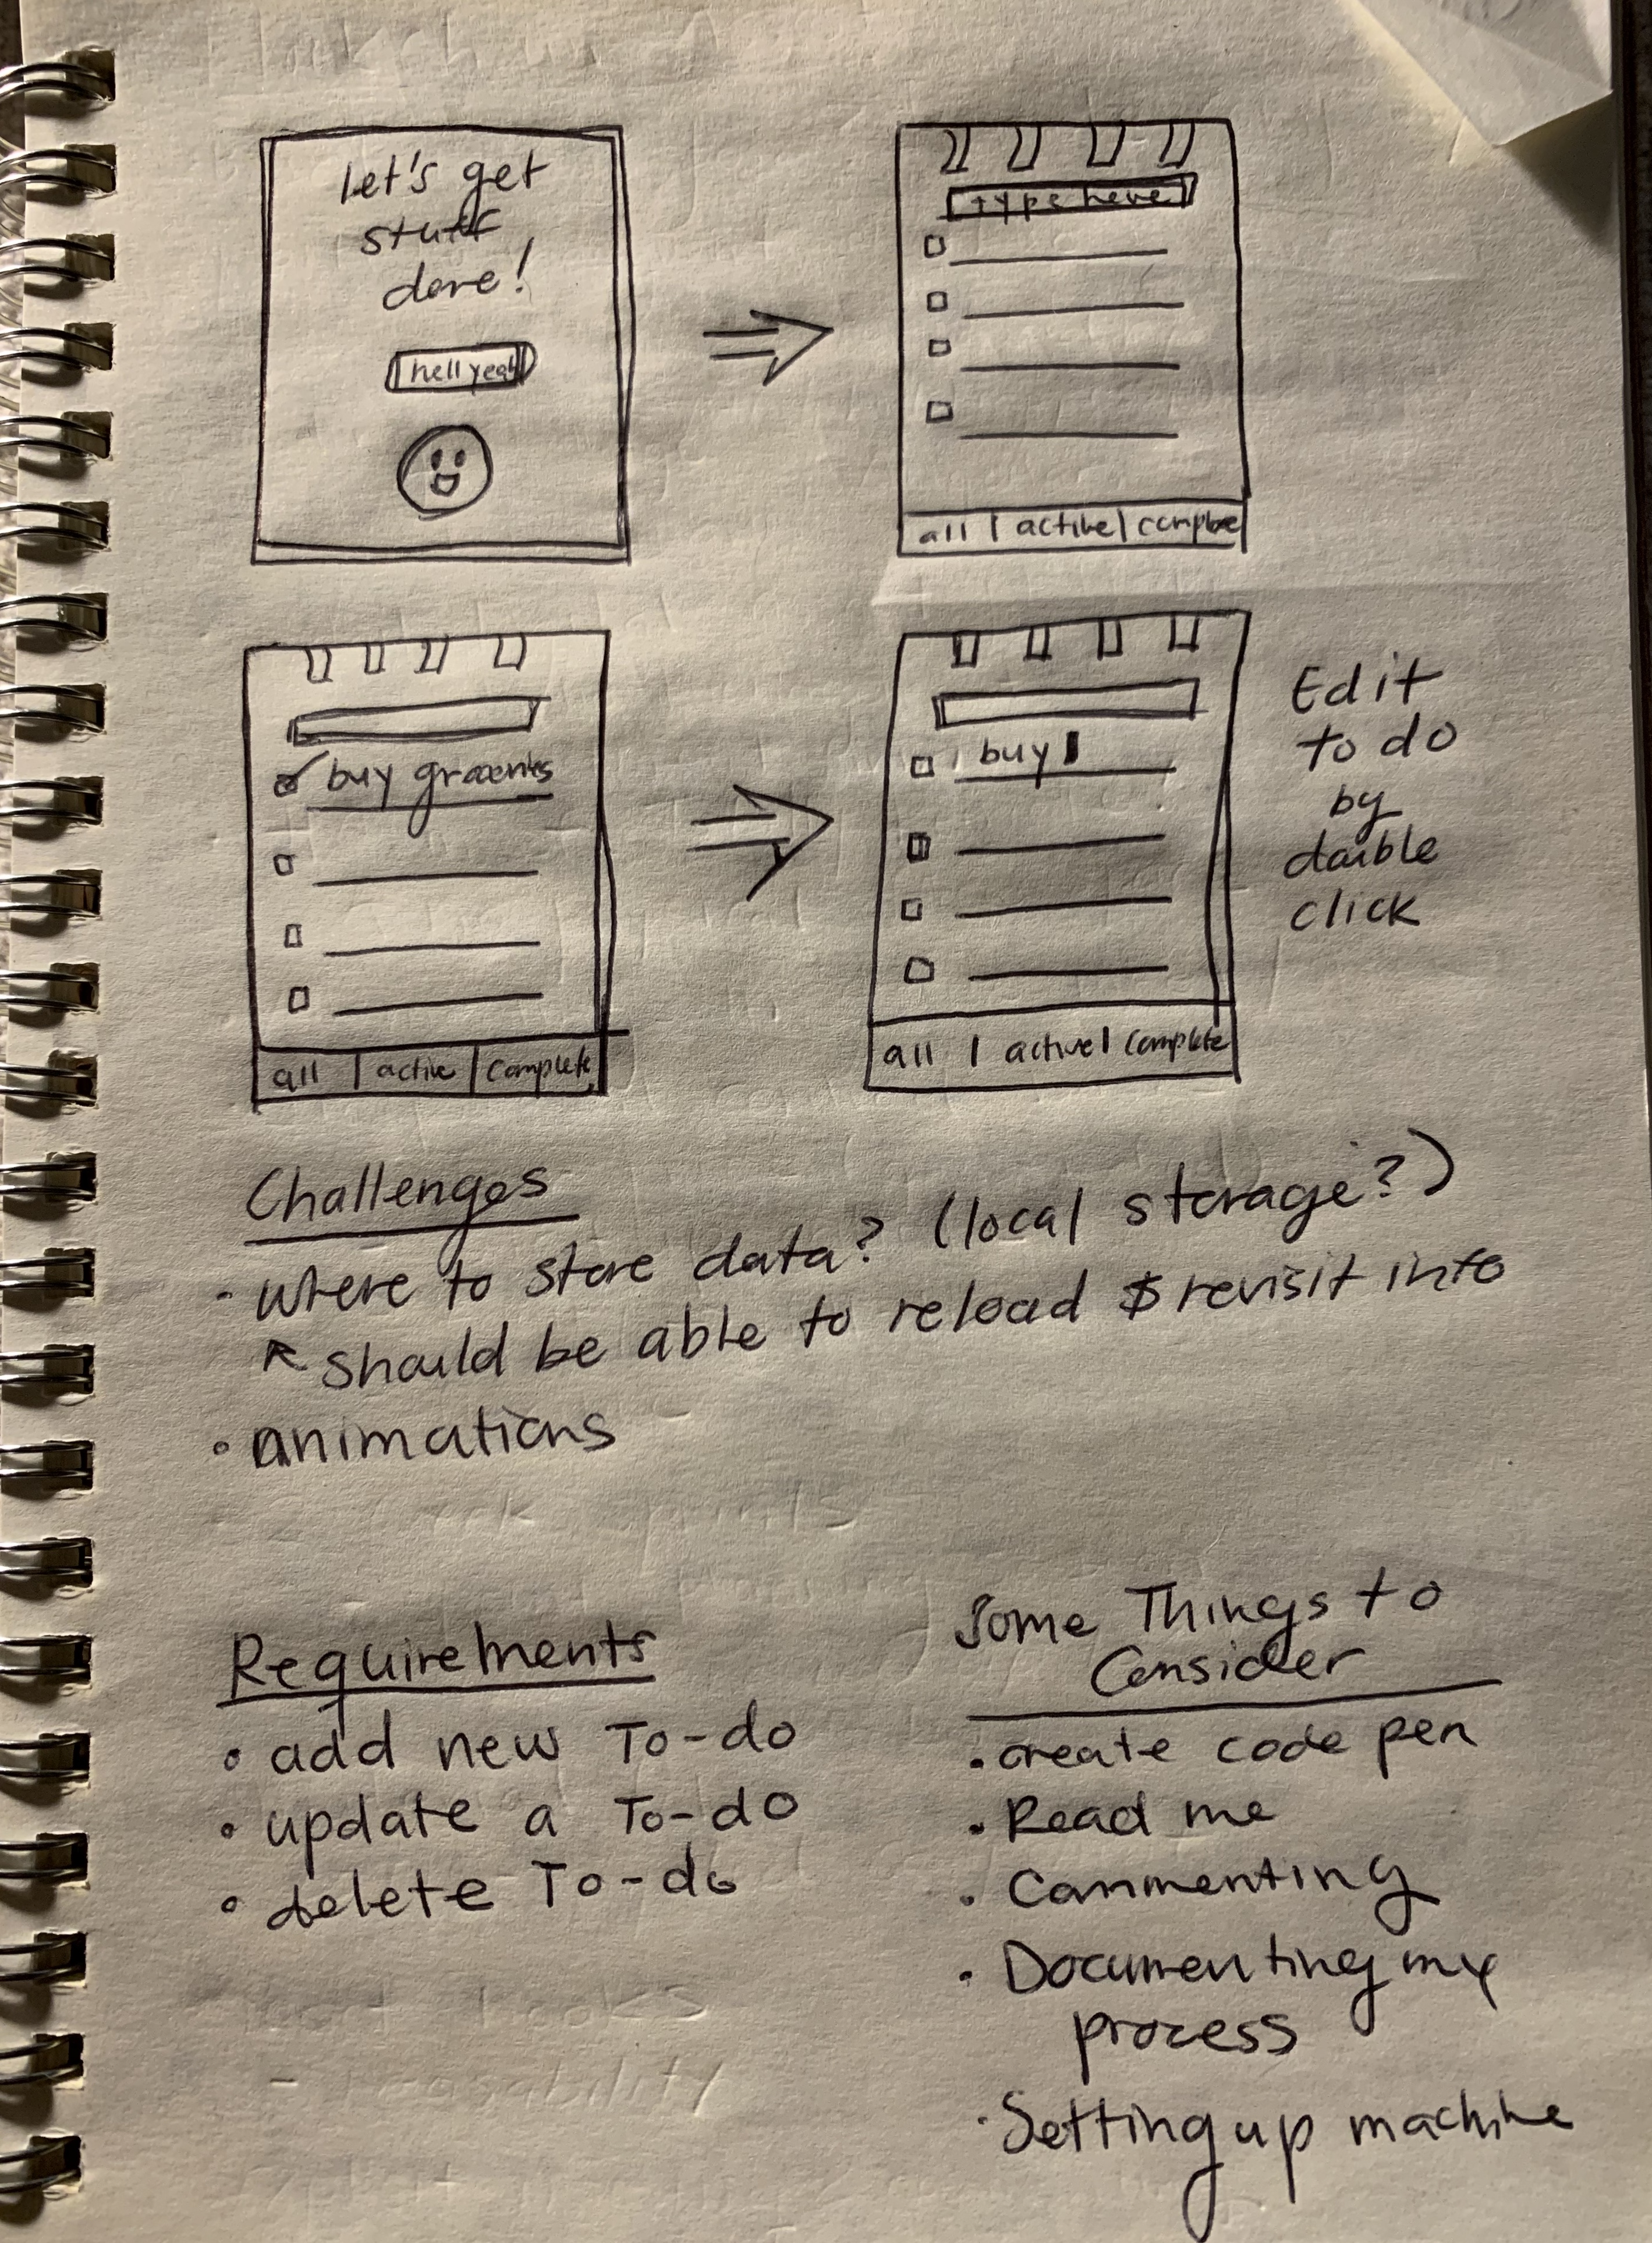 Let's get
stuff
done!
hell yeah
type here
all | active | complete
buy groceries
all | active | complete
buy
all | active | complete
Edit
to do
by
double
click
Challenges
• where to store data? (local storage?)
should be able to reload & revisit info
• animations
Requirements
• add new To-do
• update a To-do
• delete To-do
Some Things to
Consider
• create code pen
• Read me
• Commenting
• Documenting my
process
• Setting up machine